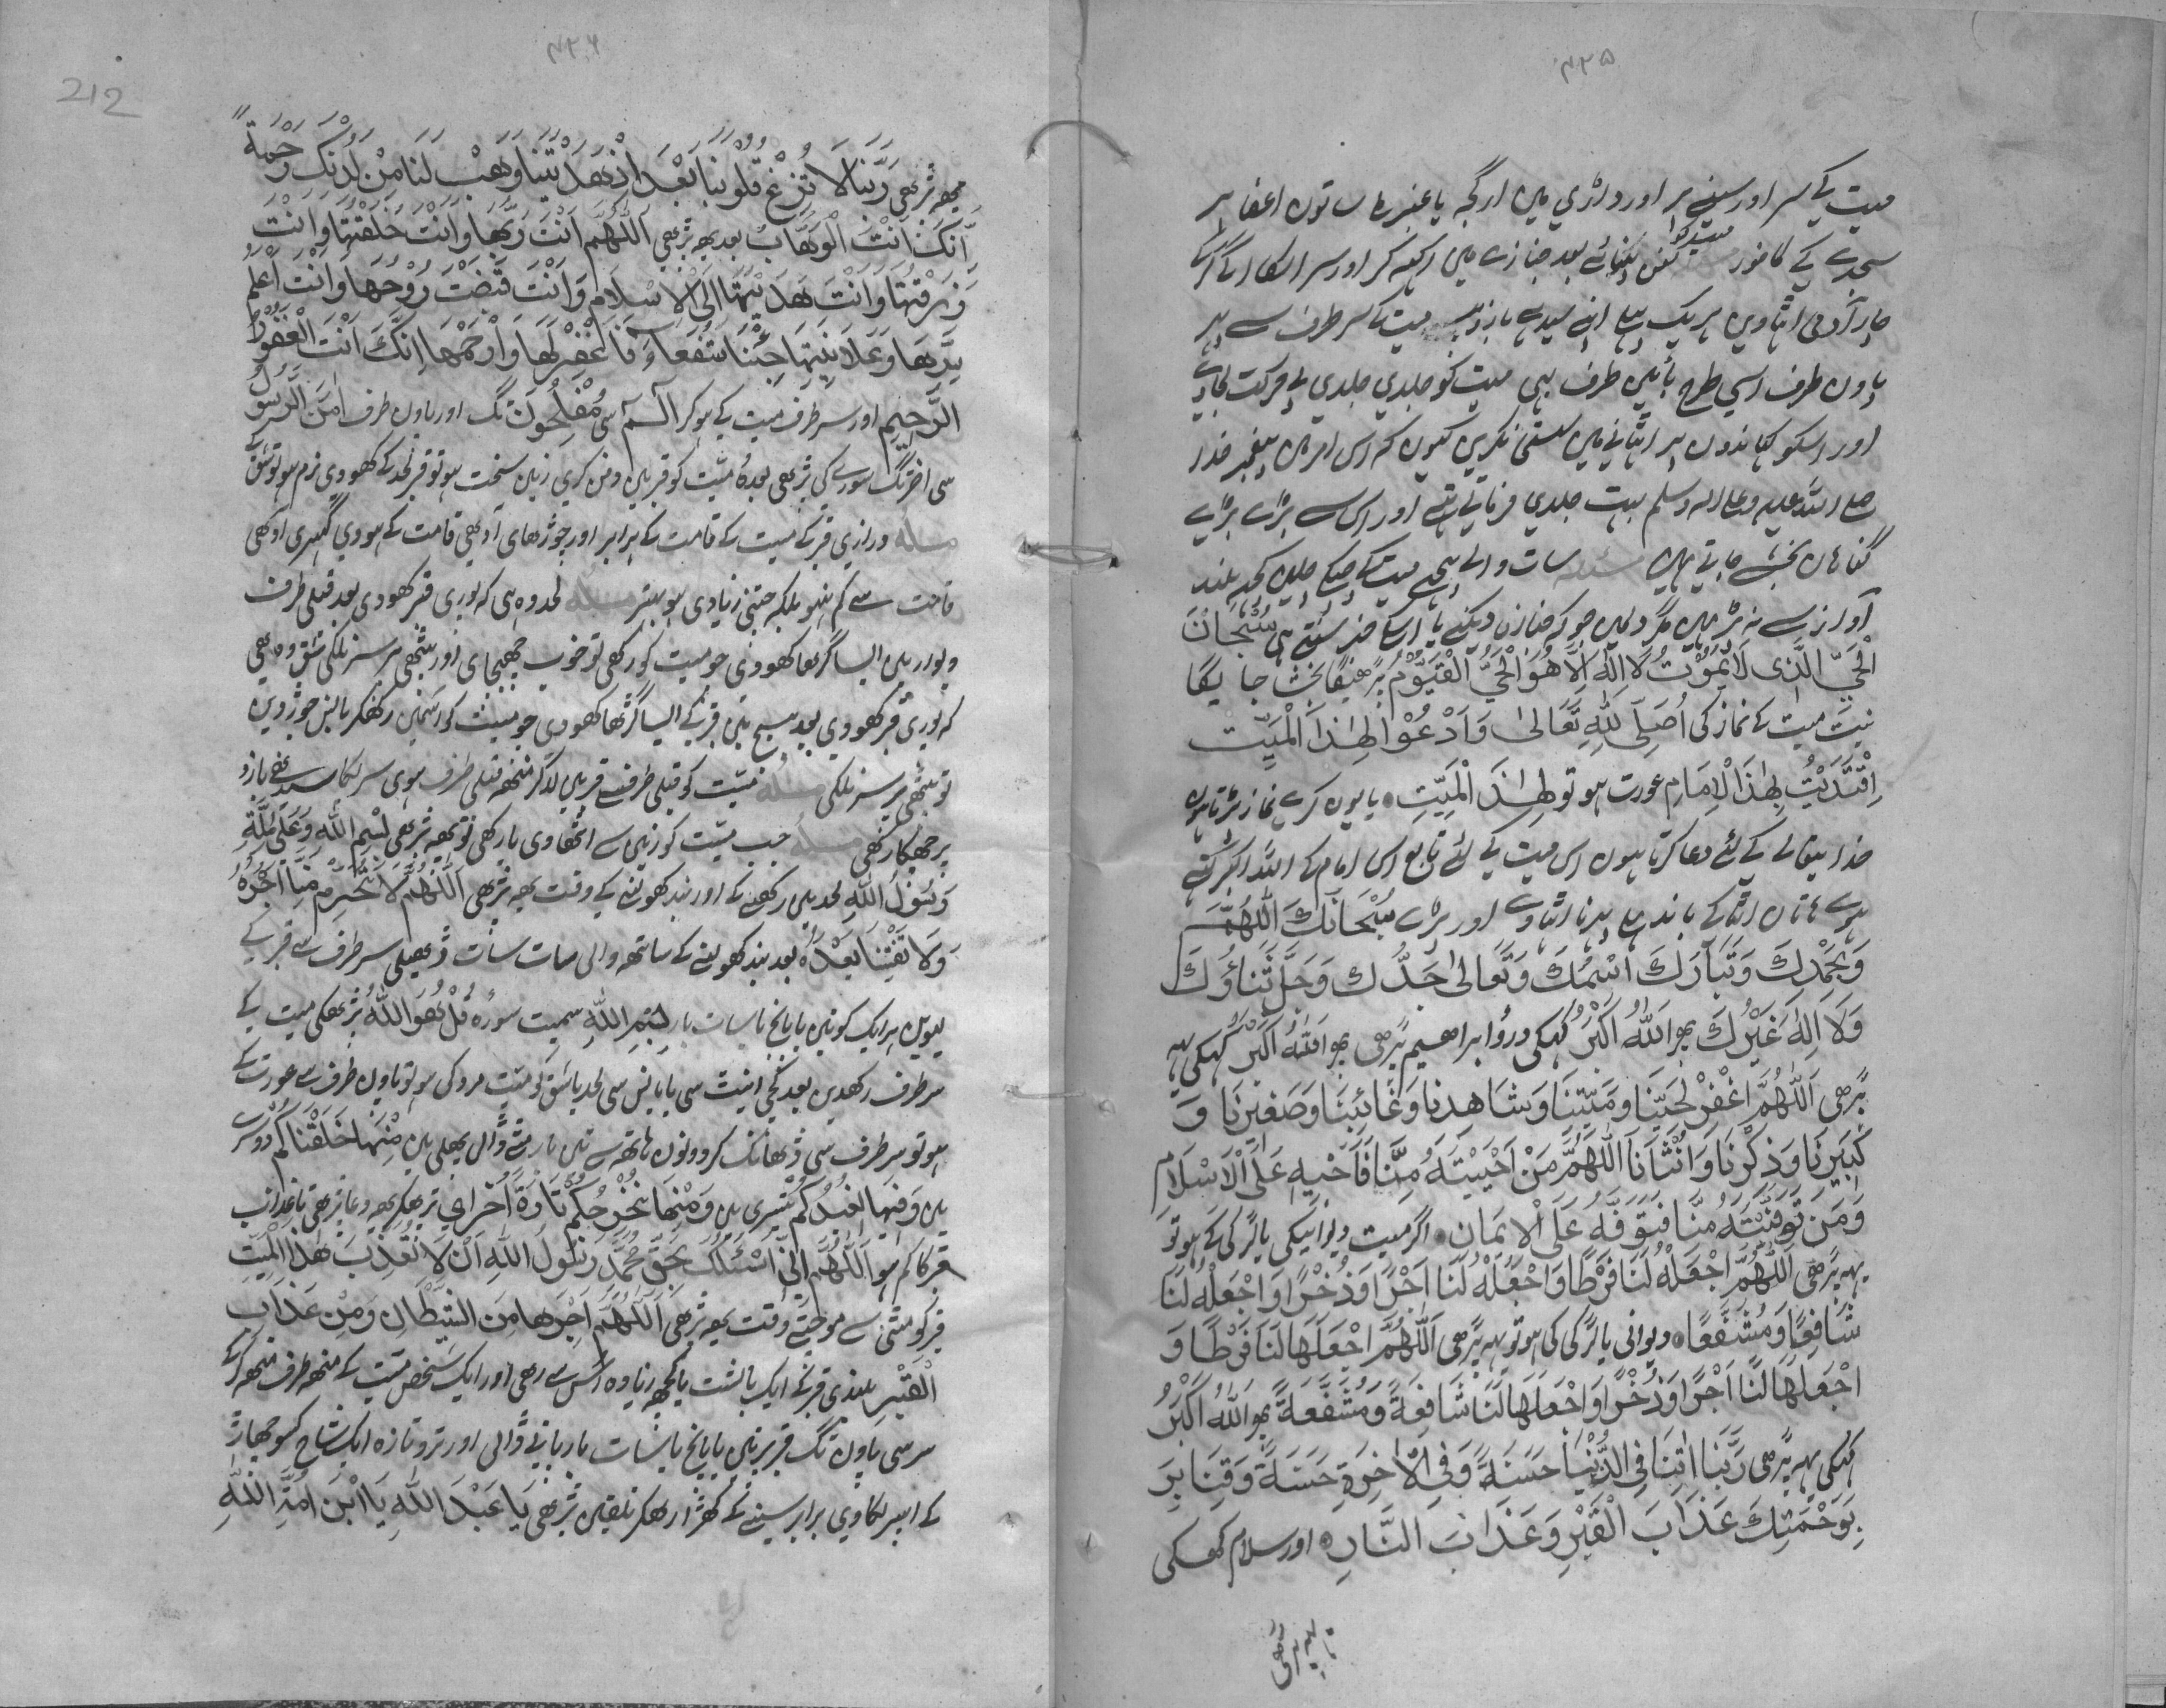 ۴۲۵
میت کے سر اور سینے پر اور داڑی میں ارگجہ یا عنبر مل ساتوں اعضا پر
سجدے کے کافور میت کو کفن پنہائے بعد جنازے میں رکھہ کر اور سر اسکا آگے کر کے
چار آدمی اٹھاویں ہر یک پہلے اپنے سیدہے بازو پر میت کے سر طرف سے پہر
پاوں طرف اسی طرح بائیں طرف بہی میت کو جلدی جلدی بے حرکت لیجاوے
اور اسکو کہاندوں پر اٹہانے میں سستی نکریں کیوں کہ اس امر میں پیغمبر خدا
صلے اللہ علیہ وعلے الہ وسلم بہت جلدی فرماتے تہے اور اس سے بڑے بڑے
گناہاں بخشے جاتے ہیں مسئلہ سات والے پیچھے میت کے چپکے چلیں کچہ بلند
آواز سے نہ پڑہیں مگر دلمیں جو کہ جنازہ دیکہے یا اسکا خبر سنتے ہی سُبْحَانَ
الْحَيِّ الَّذِی لَا یَمُوْتُ لَا اِلٰہَ اِلَّا ھُوَ الْحَیُّ الْقَیُّوْمُ پڑھیگا بخشا جایگا
نیت میت کے نماز کی اُصَلِّی لِلّٰہِ تَعَالیٰ وَاَدْعُوْا لِھٰذَا الْمَیِّتِ
اِقْتَدَیْتُ بِھٰذَا الْاِمَامِ عورت ہو تو لِھٰذَہ الْمَیِّتِ یا یوں کرے نماز پڑتا ہوں
خدا یتعالے کے لئے دعا کرتا ہوں اس میت کے لئے تابع اس امام کے اللہ اکبر کہتے
ہوے ہاتاں اٹہا کے باندہے پہر نا اٹہاوے اور پڑے سُبْحَانَکَ اللّٰھُمَّ
وَبِحَمْدِکَ وَتَبَارَکَ اسْمُکَ وَتَعَالیٰ جَدُّکَ وَجَلَّ ثَنَاؤُکَ
وَلَا اِلٰہَ غَیْرُکَ پھر اَللّٰہُ اَکْبَرُ کہکی درود ابراھیم پڑھی پھر اَللّٰہُ اَکْبَرْ کہکی یہہ
پڑھی اَللّٰھُمَّ اغْفِرْ لِحَیِّنَا وَمَیِّتِنَا وَشَاھِدِنَا وَغَائِبِنَا وَصَغِیْرِنَا وَ
کَبِیْرِنَا وَذَکَرِنَا وَاُنْثَانَا اَللّٰھُمَّ مَنْ اَحْیَیْتَہُ مِنَّا فَاَحْیِہٖ عَلَی الْاِسْلَامِ
وَمَنْ تَوَفَّیْتَہُ مِنَّا فَتَوَفَّہُ عَلَی الْاِیْمَانِ اگر میت دیوانیکی یا لڑکی کے ہو تو
یہہ پڑھی اَللّٰھُمَّ اجْعَلْہُ لَنَا فَرَطًا وَاجْعَلْہُ لَنَا اَجْرًا وَذُخْرًا وَاجْعَلْہُ لَنَا
شَافِعًا وَمُشَفَّعًا دیوانی یا لڑکی کی ہو تو یہہ پڑھی اَللّٰھُمَّ اجْعَلْھَا لَنَا فَرَطًا وَ
اجْعَلْھَا لَنَا اَجْرًا وَذُخْرًا وَاجْعَلْھَا لَنَا شَافِعَۃً وَمُشَفَّعَۃً پھر اَللّٰہُ اَکْبَرُ
کہکی یہہ پڑھی رَبَّنَا اٰتِنَا فِی الدُّنْیَا حَسَنَۃً وَّفِی الْاٰخِرَۃِ حَسَنَۃً وَّقِنَا بِرَ
بِرَحْمَتِکَ عَذَابَ الْقَبْرِ وَعَذَابَ النَّارِ اور سلام کہکی
یہہ پڑھی
۴۲۶
212
یہہ پڑھی رَبَّنَا لَا تُزِغْ قُلُوْبَنَا بَعْدَ اِذْ ھَدَیْتَنَا وَھَبْ لَنَا مِنْ لَّدُنْکَ رَحْمَۃً
اِنَّکَ اَنْتَ الْوَھَّابُ بعد یہہ پڑھی اَللّٰھُمَّ اَنْتَ رَبُّھَا وَاَنْتَ خَلَقْتَھَا وَاَنْتَ
رَزَقْتَھَا وَاَنْتَ ھَدَیْتَھَا اِلَی الْاِسْلَامِ وَاَنْتَ قَبَضْتَ رُوْحَھَا وَاَنْتَ اَعْلَمُ
بِسِرِّھَا وَعَلَانِیَتِھَا جِئْنَا شُفَعَاءَ فَاغْفِرْلَھَا وَارْحَمْھَا اِنَّکَ اَنْتَ الْغَفُوْرُ
الرَّحِیْمِ اور سر طرف میت کے ہو کر آلٓمٓ سی مُفْلِحُوْنَ تگ اور پاوں طرف اٰمَنَ الرَّسُوْلُ
سی اخر تگ سورے کی پڑھی بعدہُ میّت کو قبر میں دفن کری زمین سخت ہو تو قبر لحد کے کھودی نرم ہو تو شق کے
مسئلہ درازی قبر کے میت کے قامت کے برابر اور چوڑھای آدھی قامت کے ہووی گہیری آدھی
قامت سے کم نہو بلکہ جتنی زیادی ہو بہتر مسئلہ لحد وہ ہی کہ پوری قبر کھودی بعد قبلی طرف
دیوار میں ایسا گڑھا کھودی جو میت کو رکھی تو خوب چھپجای اور مٹھی پر سر نلگی شق وہ ھی
کہ پوری قبر کھودی بعد بیچ میں قبر کے ایسا گڑھا کھودی جو میّت کو اسمیں رکھکر بانس جوڑ دیں
تو مٹھی پر سر نلگی مسئلہ میّت کو قبلی طرفسے قبر میں لاکر منھہ قبلی طرف ہوی سر لگا سیدھی بازو
پر جھکا رکھی مسئلہ جب میّت کو زمیں سے اٹھاوی یا رکھی تو یھہ پڑھی بِسْمِ اللّٰہِ وَعَلٰی مِلَّۃِ
رَسُوْلِ اللّٰہِ لحد میں رکھنے کے اور بند کھولنے کے وقت یہہ پڑھی اَللّٰھُمَّ لَا تَحْرِمْ مِنَّا اَجْرَہُ
وَلَا تَفْتِنَّا بَعْدَہُ بعد بند کھولنے کے ساتھہ والی سات سات ڈھیلی سر طرف سے قبر کے
لیویں ہر ایک کونیں یا پانچ یا سات بار بِسْمِ اللّٰہِ سمیت سورۂ قُلْ ھُوَ اللّٰہُ پڑھکی میت کے
سر طرف رکھدیں بعد کچی اینٹ سی یا بانس سی لحد یا شق کو میّت مرد کی ہو تو پاوں طرف سے عورت کے
ہو تو سر طرف سی ڈھانک کر دونوں ہاتھہ سے تین بار مٹی ڈالی پھلی میں مِنْھَا خَلَقْنَاکُمْ دوسری
میں وَفِیْھَا نُعِیْدُکُمْ تیسری میں وَمِنْھَا نُخْرِجُکُمْ تَارَۃً اُخْرٰی پڑھکر یھہ دعا پڑھی تا عذاب
قبر کا کم ہو اَللّٰھُمَّ اِنِّی اَسْئَلُکَ بِحَقِّ مُحَمَّدٍ رَسُوْلِ اللّٰہِ اَنْ لَا تُعَذِّبَ ھٰذَا الْمَیِّتِ
قبر کو مٹی سے موجتے وقت یھہ پڑھی اَللّٰھُمَّ اَجِرْھَا مِنَ الشَّیْطَانِ وَمِنْ عَذَابِ
الْقَبْرِ بلندی قبر کے ایک بالشت یا کچھہ زیادہ اُس سے رھی اور ایک شخص میّت کے منھہ طرف منھہ کر کے
سر سی پاوں تگ قبر پر تین یا پانچ یا سات بار پانی ڈالی اور تر و تازہ ایک شاخ کسو جھاڑ
کے اسپر لگاوی برابر سینے کے کھڑا رھکر تلقین پڑھی یَا عَبْدَ اللّٰہِ یَا ابْنَ اَمَۃِ اللّٰہِ